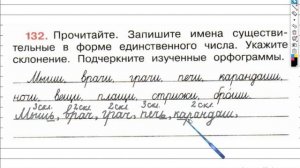 132. Прочитайте. Запишите имена существи-
тельные в форме единственного числа. Укажите
склонение. Подчеркните изученные орфограммы.
Мыши, врачи, грачи, печи, карандаши,
ночи, вещи, плащи, стрижи, броши.
3скл 2скл 2скл 3скл 2скл
Мышь, врач, грач, печь, карандаш,